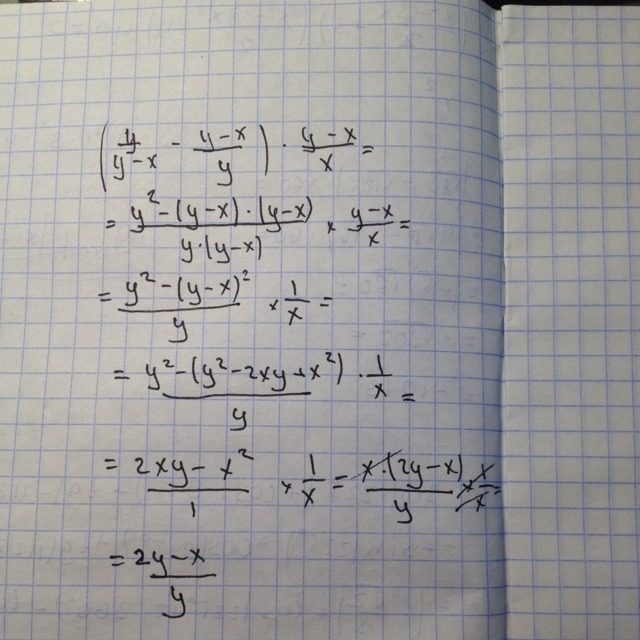 (y/(y-x) - (y-x)/y) · (y-x)/x =
= (y²-(y-x)·(y-x))/(y·(y-x)) × (y-x)/x =
= (y²-(y-x)²)/y × 1/x =
= (y²-(y²-2xy+x²))/y · 1/x =
= (2xy-x²)/1 × 1/x = (x·(2y-x))/y
= (2y-x)/y